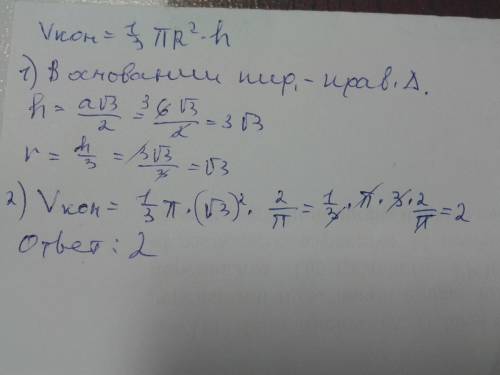 Vкон = 1/3 πR² · h
1) В основании пир. – прав. Δ.
h = a√3/2 = 6√3/2 = 3√3
r = h/3 = 3√3/3 = √3
2) Vкон = 1/3 π · (√3)² · 2/π = 1/3 · π · 3 · 2/π = 2
Ответ: 2